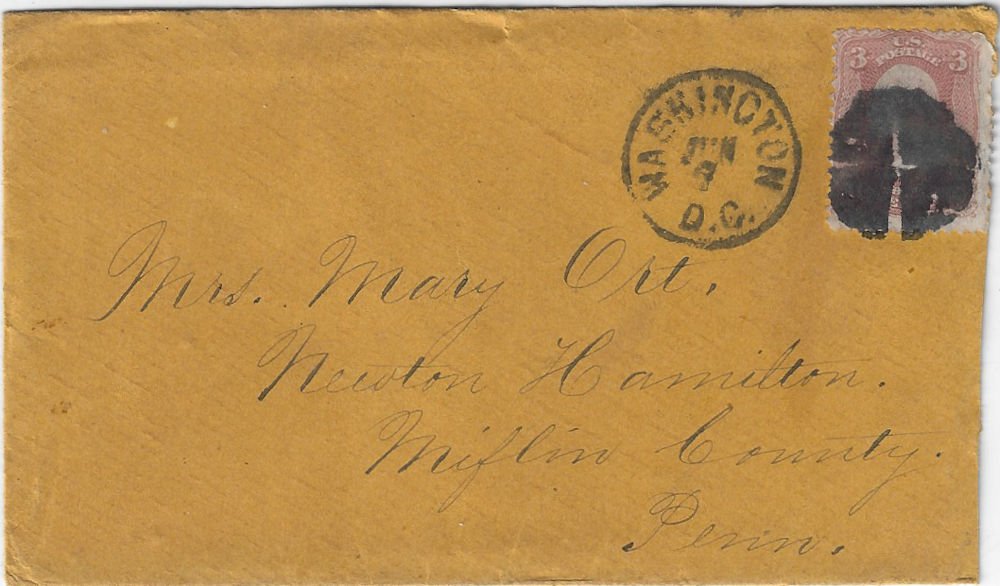 3 U.S. 3
POSTAGE
WASHINGTON
JUN
D.C.
Mrs. Mary Ort.
Newton Hamilton.
Miflin County.
Penn.